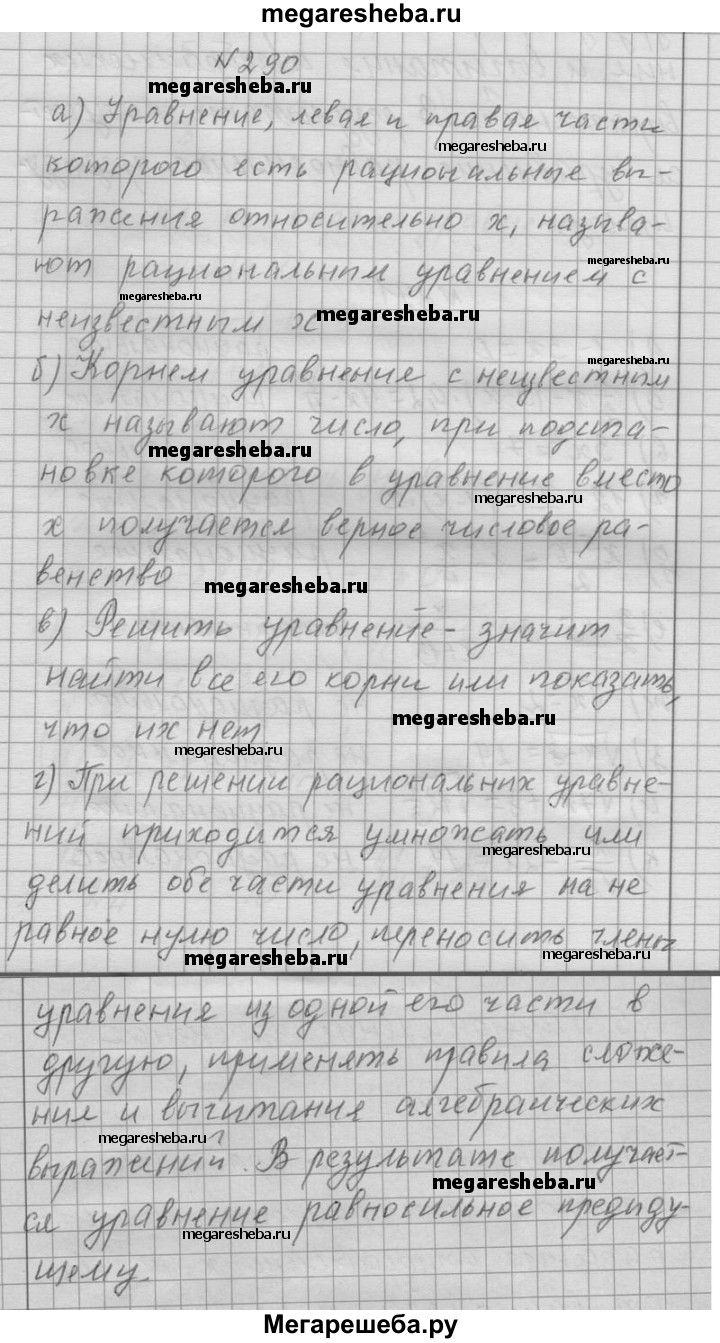 megaresheba.ru
№290
megaresheba.ru
а) Уравнение, левая и правая части
megaresheba.ru
которого есть рациональные вы-
ражения относительно х, называ-
megaresheba.ru
ют рациональным уравнением с
megaresheba.ru
неизвестным х
megaresheba.ru
megaresheba.ru
б) Корнем уравнения с неизвестным
х называют число, при подста-
megaresheba.ru
новке которого в уравнение вместо
megaresheba.ru
х получается верное числовое ра-
венство
megaresheba.ru
в) Решить уравнение - значит
найти все его корни или показать,
что их нет.
megaresheba.ru
megaresheba.ru
г) При решении рациональных уравне-
ний приходится умножать или
megaresheba.ru
делить обе части уравнения на не
равное нулю число, переносить члены
megaresheba.ru
megaresheba.ru
уравнения из одной его части в
другую, применять правила сложе-
ния и вычитания алгебраических
megaresheba.ru
выражений. В результате получает-
megaresheba.ru
ся уравнение равносильное предиду-
megaresheba.ru
щему.
Мегарешеба.ру